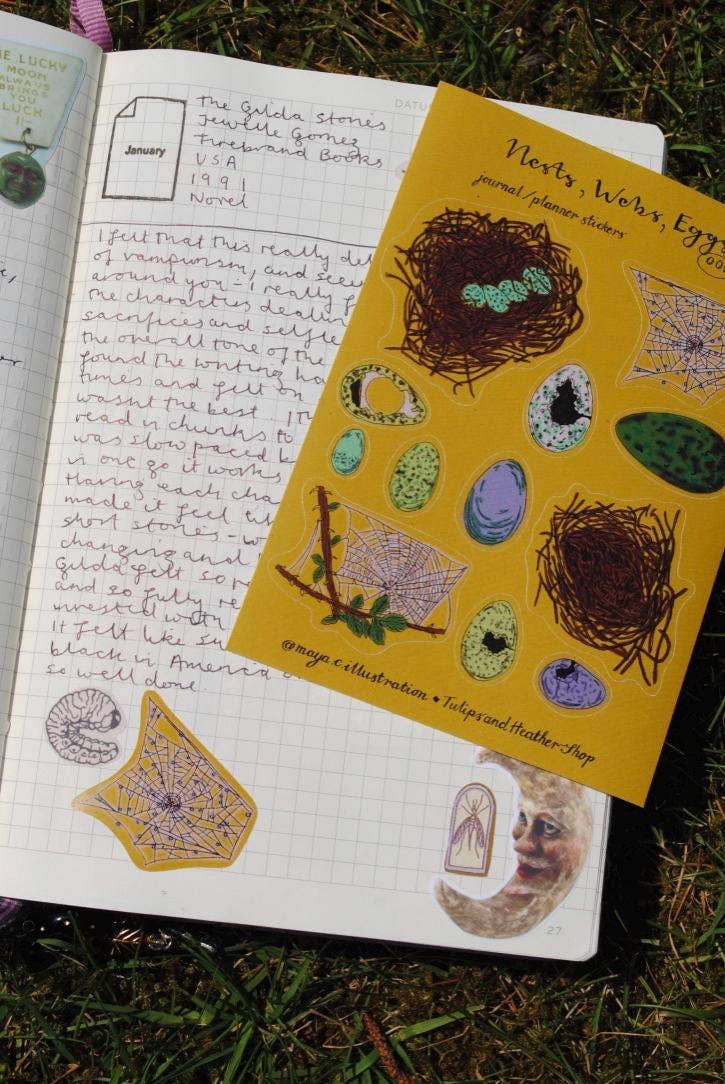 THE LUCKY
MOON
ALWAYS
BRINGS
YOU
LUCK
January
The Gilda Stories
Jewelle Gomez
Firebrand Books
USA
1991
Novel
DATU
I felt that this really del
of vampirism, and
around you - I really
the characters
sacrifices and
the overall tone of the
found the writing
times and felt
wasn't the best.
read in chunks to
was slow paced
in one go it works
Having each cha
made it feel
short stories -
changing and
Gilda felt so
and so fully re
It felt like
black in America
so well done.
27
Nests, Webs, Eggs
journal/planner stickers
@maya.c.illustration • TulipsandHeatherShop